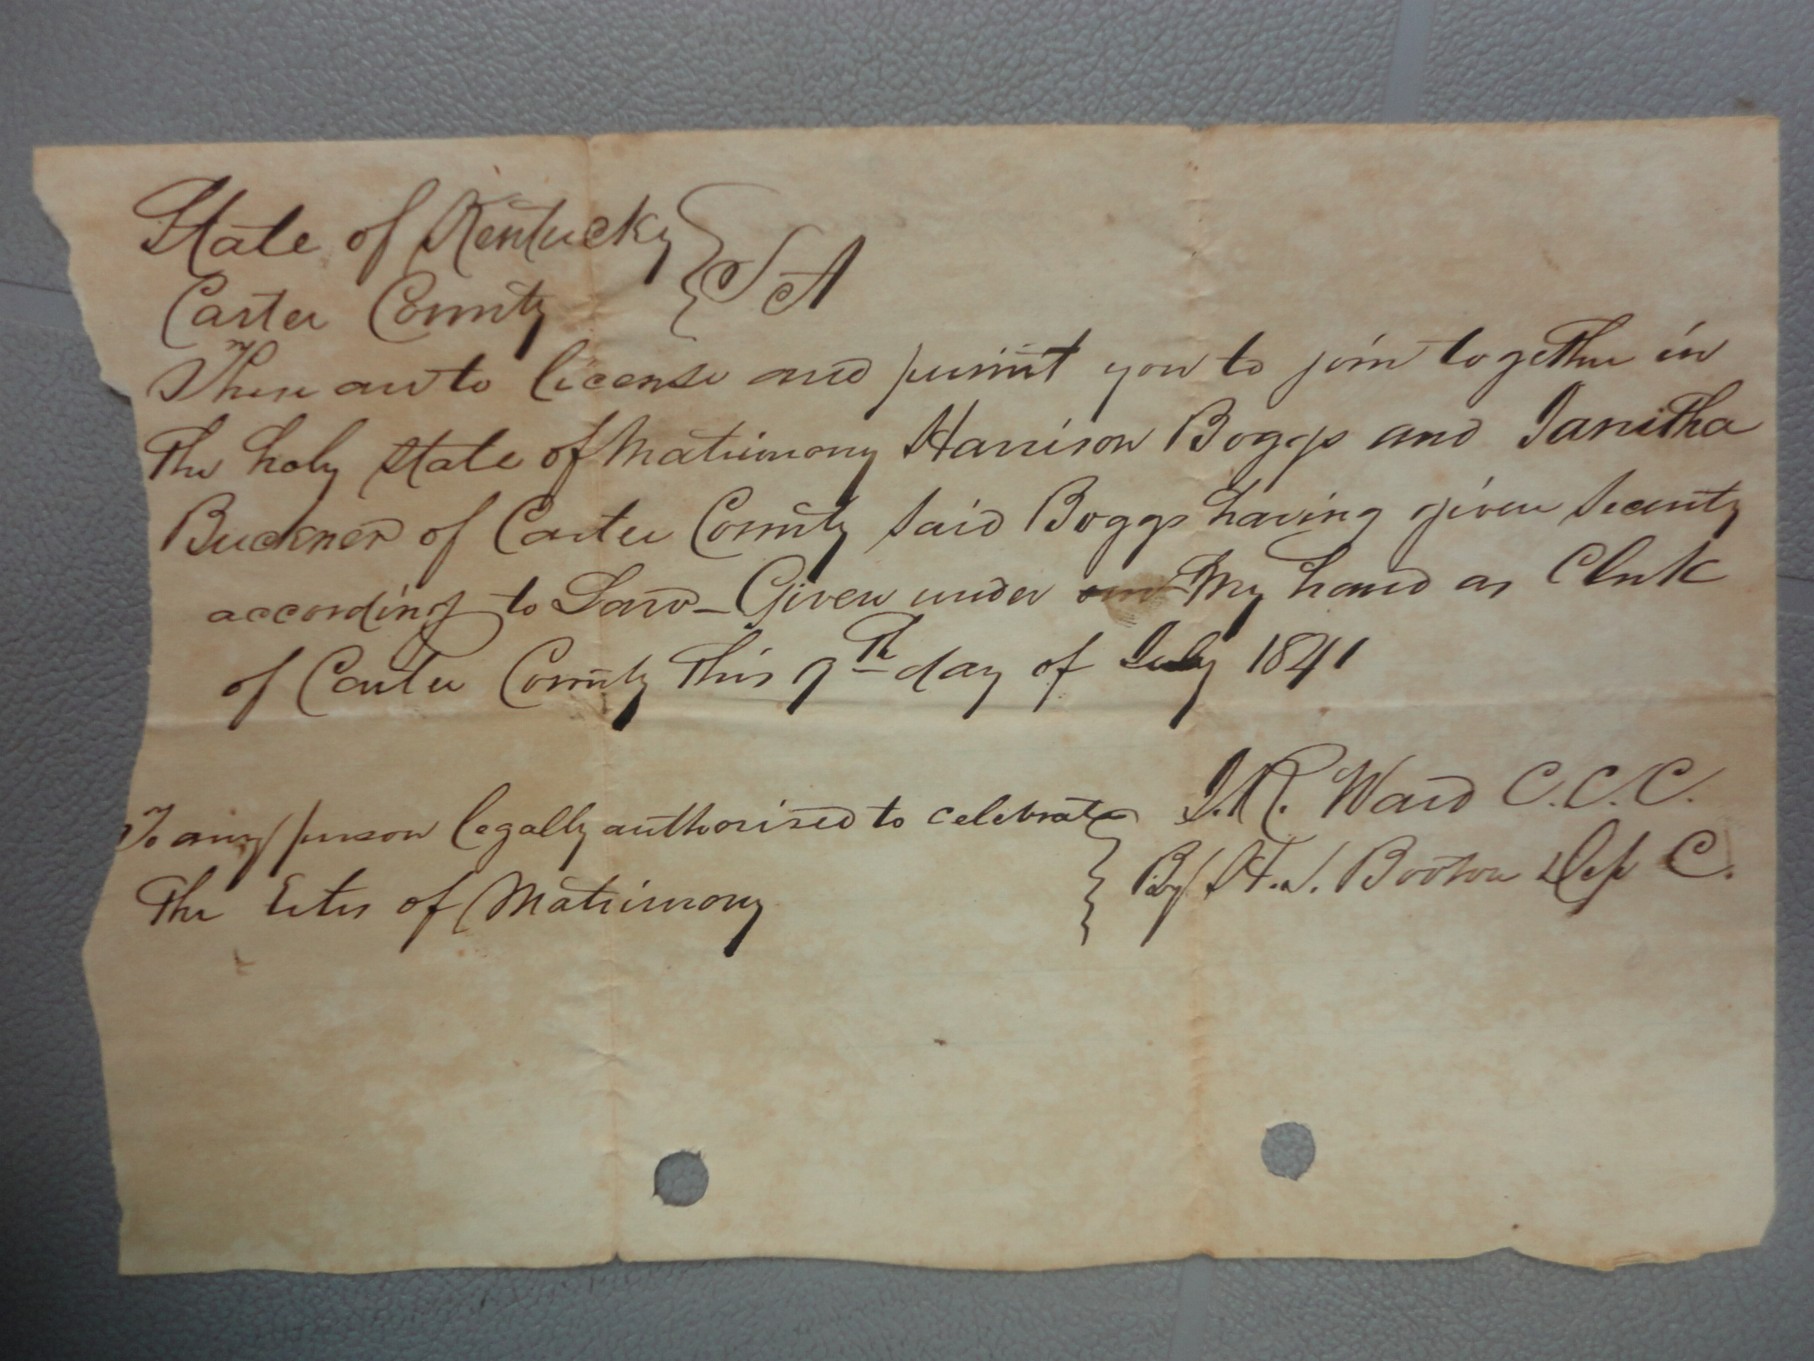 State of Kentucky
Carter County } SA
These are to license and permit you to join together in
the holy state of Matrimony Harrison Boggs and Janitha
Buckner of Carter County said Boggs having given security
according to Law - Given under my hand as Clerk
of Carter County this 9th day of July 1841
J. R. Ward C.C.C.
To any person legally authorised to celebrate } By H. J. Booton Dep C.
the rites of Matrimony